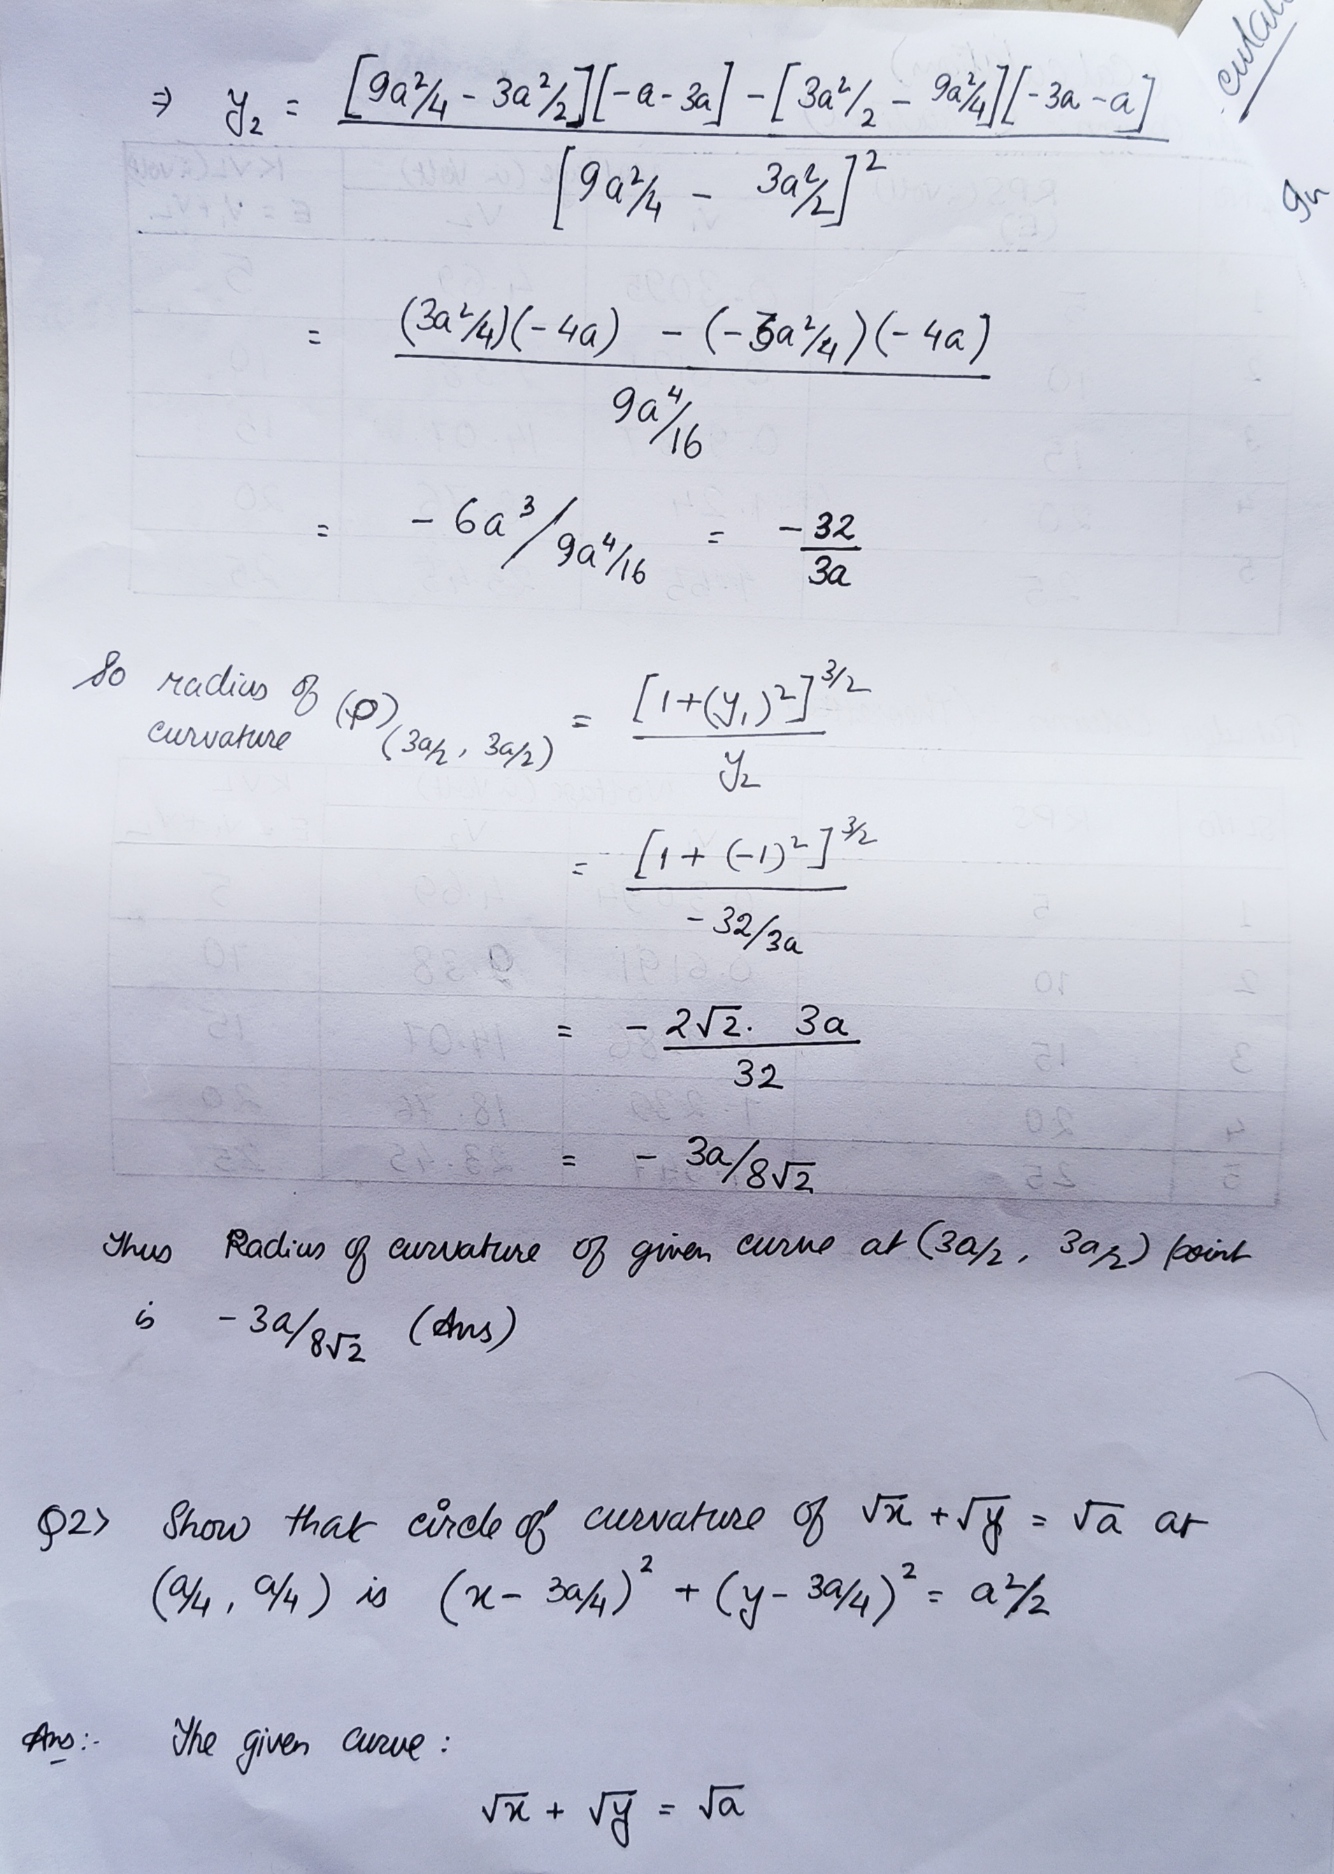 ⇒ y₂ = [9a²/4 - 3a²/2][-a-3a] - [3a²/2 - 9a²/4][-3a-a] / [9a²/4 - 3a²/2]²
= (3a²/4)(-4a) - (-3a²/4)(-4a) / 9a⁴/16
= -6a³/9a⁴/16 = -32/3a
So radius of curvature (ρ)(3a/2, 3a/2) = [1+(y₁)²]^3/2 / y₂
= [1+(-1)²]^3/2 / -32/3a
= -2√2. 3a / 32
= - 3a/8√2
Thus Radius of curvature of given curve at (3a/2, 3a/2) point
is -3a/8√2 (Ans)
Q2> Show that circle of curvature of √x + √y = √a at
(a/4, a/4) is (x - 3a/4)² + (y - 3a/4)² = a²/2
Ans:- The given curve:
√x + √y = √a